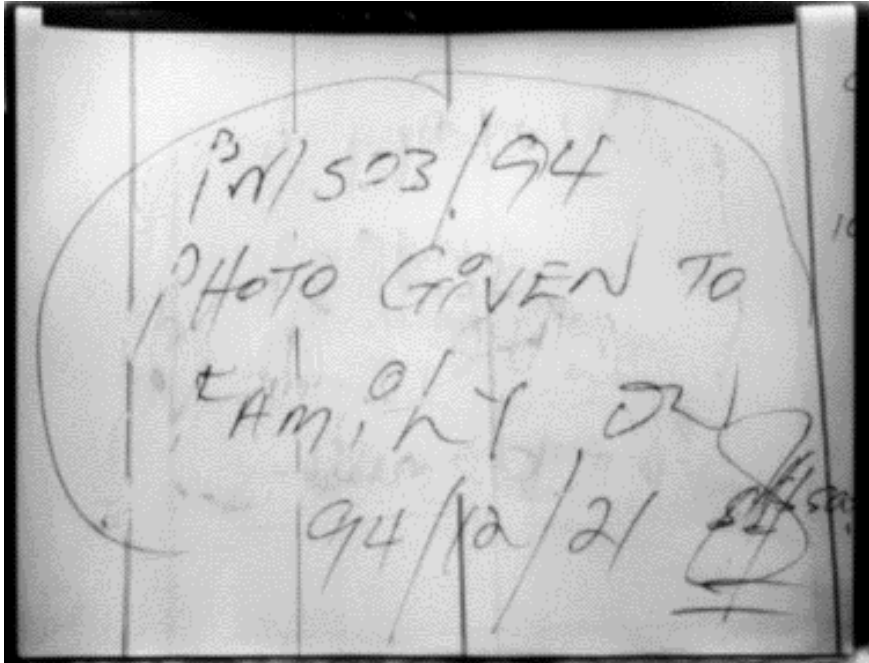 PN/503/94
PHOTO GIVEN TO
FAMILY ON
94/12/21